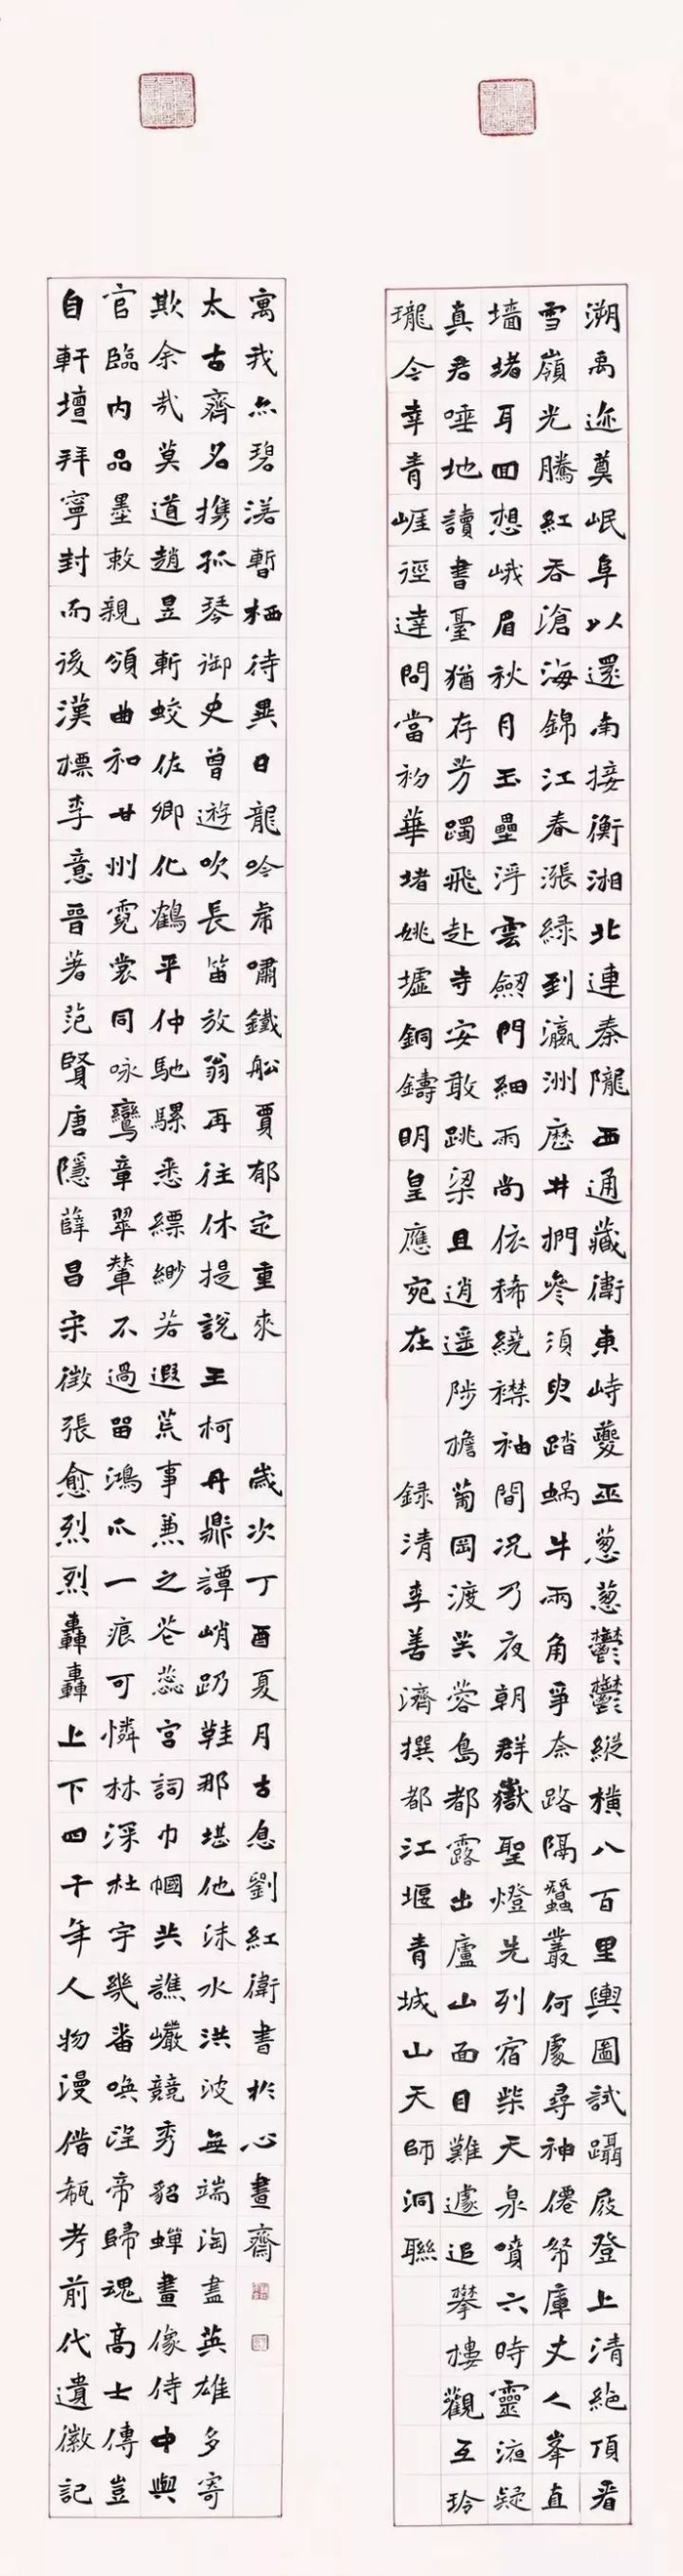 溯禹迹奠岷阜以還南接衡湘北連秦隴西通藏衛東峙夔巫葱葱鬱鬱縱橫八百里輿圖試躡屐登上清絶頂看
雪嶺光騰紅吞滄海錦江春漲緑到瀛洲歷井捫參須臾踏蝸牛兩角爭奈路隔蠶叢何處尋神僊帑庫丈人峯直
墻堵耳回想峨眉秋月玉壘浮雲劒門細雨尚依稀繞襟袖間况乃夜朝群嶽聖燈先列宿柴天泉噴六時靈液疑
真君唾地讀書臺猶存芳躅飛赴寺安敢跳梁且逍遥陟檐蔔岡渡芙蓉島都露出廬山面目難遽追攀樓觀互玲
瓏今幸青崕徑達問當初華堵姚墟銅鑄明皇應宛在
録清李善濟撰都江堰青城山天師洞聯
自軒壇拜寧封而後漢標李意晉著范賢唐隱薛昌宋徵張愈烈烈轟轟上下四千年人物漫借瓻考前代遺徽記
官臨内品墨敕親頒曲和甘州霓裳同咏鸞章翠輦不過留鴻爪一痕可憐林深杜宇幾番唤望帝歸魂高士傳豈
欺余哉莫道趙昱斬蛟佐卿化鶴平仲馳騾悉縹緲若遐荒事兼之花蕊宮詞巾幗共譙巖競秀貂蟬畫像侍中與
太古齊名携孤琴御史曾遊吹長笛放翁再往休提說王柯丹鼎譚峭趿鞋那堪他沫水洪波無端淘盡英雄多寄
寓我亦碧落暫栖待異日龍吟虎嘯鐵船賈郁定重來
歲次丁酉夏月古息劉紅衛書於心畫齋